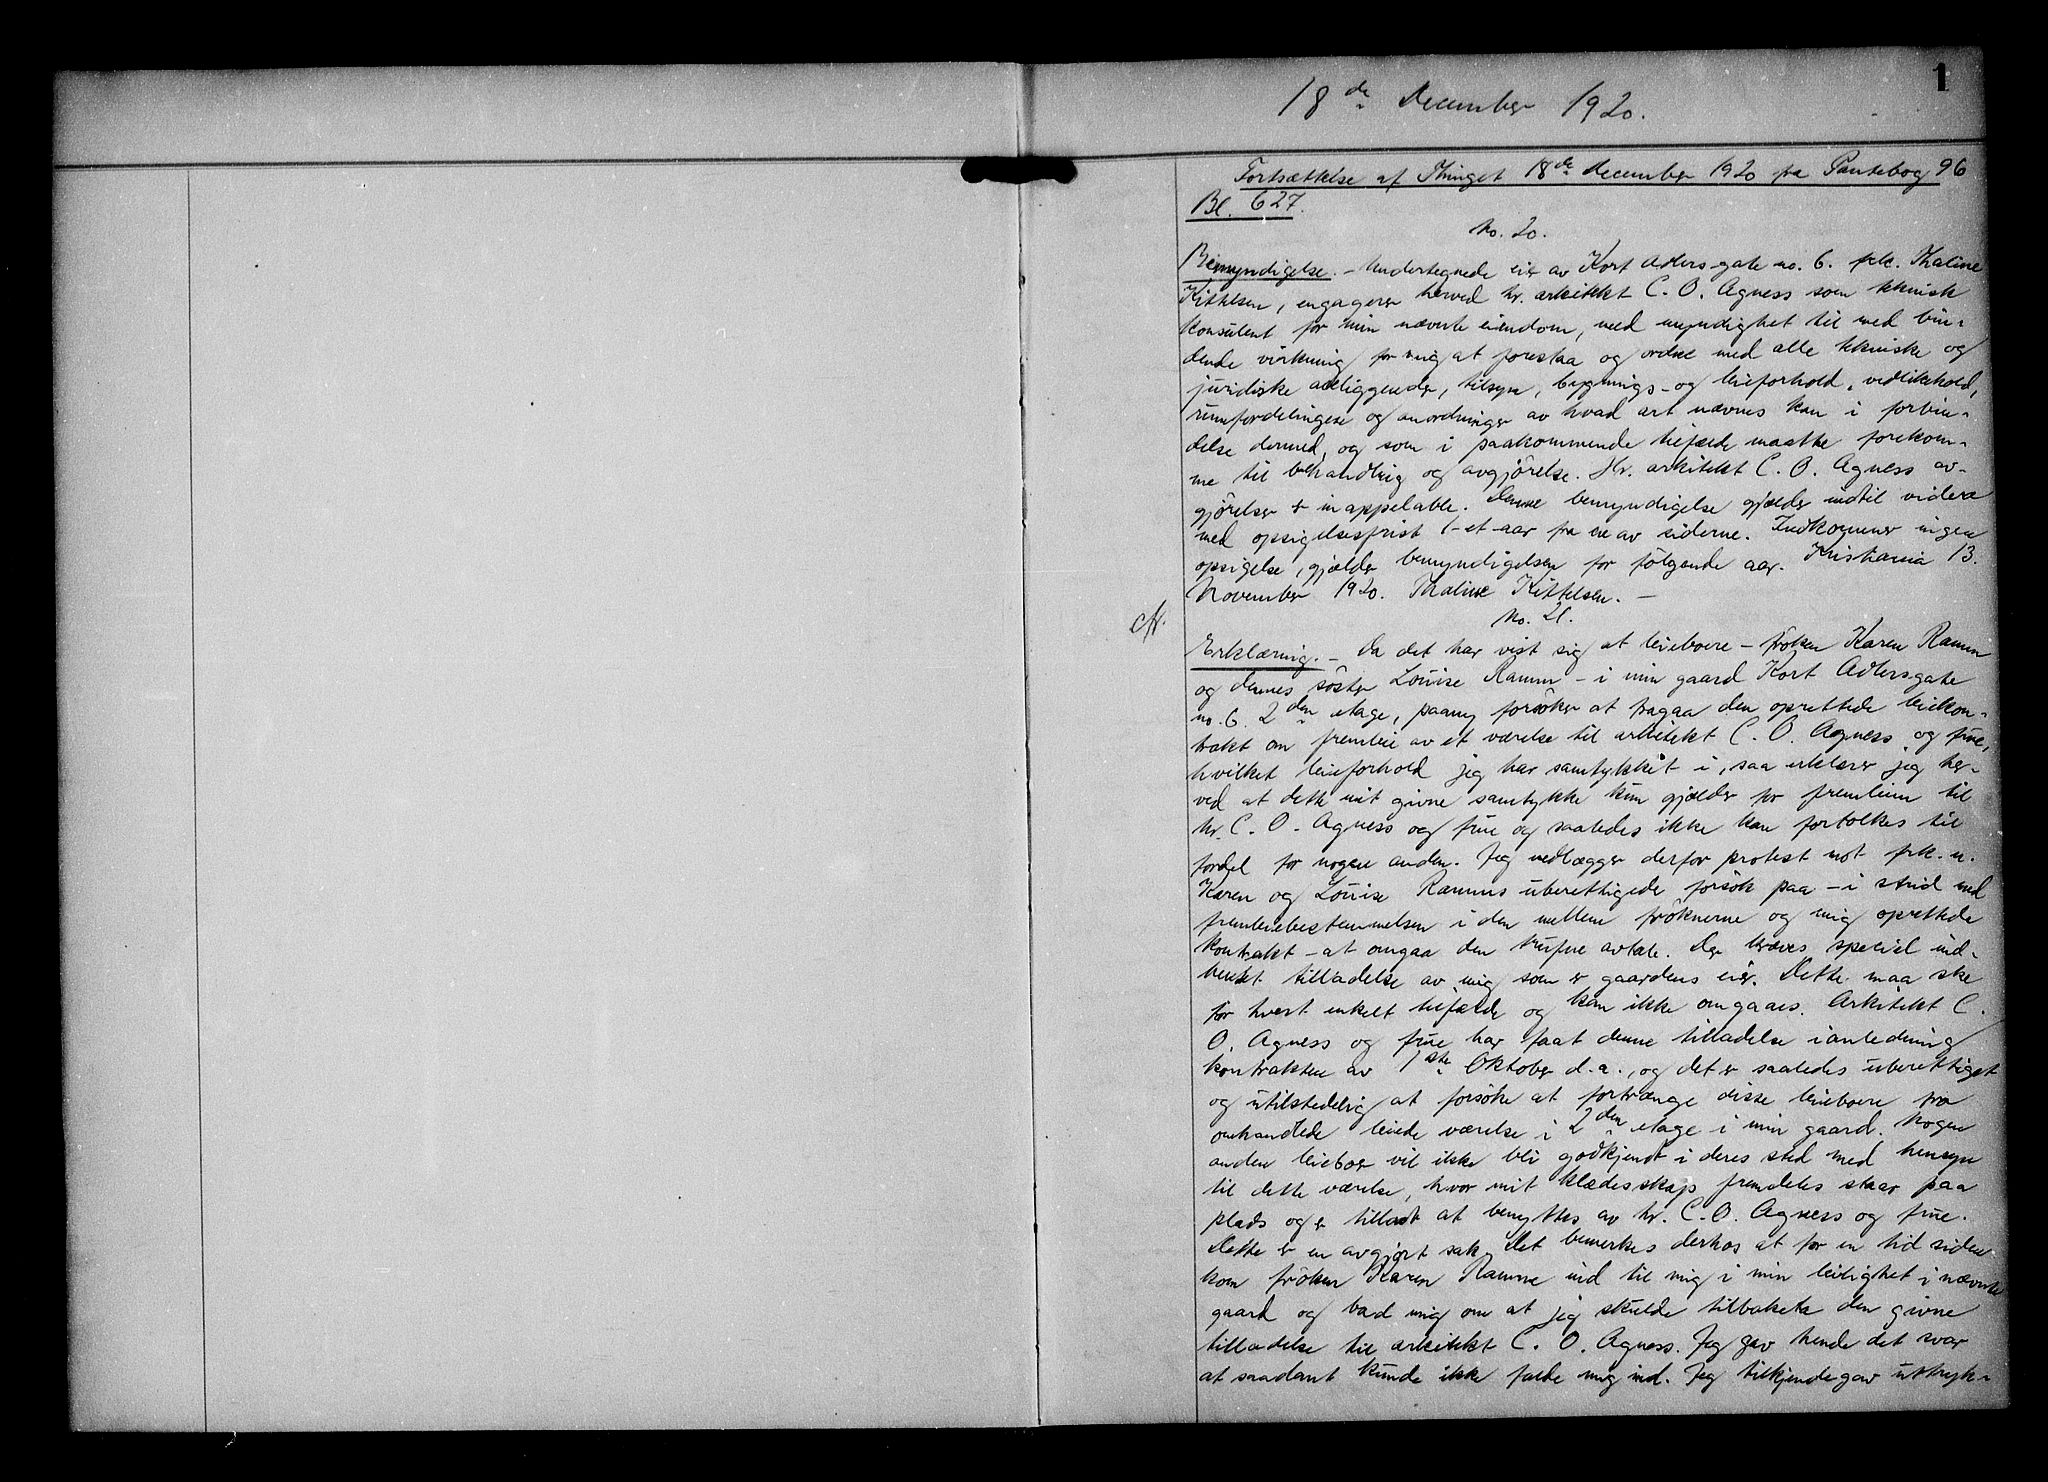 1
18de December 1920.
Fortsættelse af Thinget 18de december 1920 fra Pantebog 96
Bl. 627.
No. 20.
Bemyndigelse. - Undertegnede eier av Kort Adlers-gate no. 6. frk. Thaline
Kittelsen, engagerer herved hr. arkitekt C. O. Agness som teknisk
konsulent for min nævnte eiendom, med myndighet til med bin-
dende virkning for mig at forestaa og ordne med alle tekniske og
juridiske anliggender, tilsyn, bygnings- og leieforhold, vedlikehold,
rumfordelingene og anordninger av hvad art nævnes kan i forbin-
delse dermed, og som i paakommende tilfælde maatte forekom-
me til behandling og avgjörelse. Hr. arkitekt C. O. Agness av-
gjörelser er inappelable. Denne bemyndigelse gjælder indtil videre
med opsigelsesfrist 1-et-aar fra en av siderne. Indkommer ingen
opsigelse, gjælder bemyndigelsen for følgende aar. Kristiania 13.
November 1920. Thaline Kittelsen. -
No. 21.
cfr.
Erklæring. - Da det har vist sig at leieboere - frøken Karen Ramm
og dennes søster Louise Ramm - i min gaard Kort Adlersgate
no. 6. 2den etage, paany forsöker at fragaa den oprettede leiekon-
trakt om fremleie av et værelse til arkitekt C. O. Agness og frue,
hvilket leieforhold jeg har samtykket i, saa erklærer jeg her-
ved at dette mit givne samtykke kun gjælder for fremleien til
hr. C. O. Agness og frue og saaledes ikke kan fortolkes til
fordel for nogen anden. Jeg nedlægger derfor protest mot frk.n.
Karen og Louise Ramms uberettigede forsök paa - i strid med
fremleiebestemmelsen i den mellem fröknerne og mig oprettede
kontrakt - at omgaa den trufne avtale. Der kræves speciel ind-
hentet tilladelse av mig som er gaardens eier. Dette maa ske
for hvert enkelt tilfælde og kan ikke omgaaes. Arkitekt C.
O. Agness og frue har faat denne tilladelse i anledning
kontrakten av 1ste Oktober d.a., og det er saaledes uberettiget
og utilstedelig at forsöke at fortrænge disse leieboere fra
omhandlede leiede værelse i 2den etage i min gaard. Nogen
anden leieboer vil ikke bli godkjendt i deres sted med hensyn
til dette værelse, hvor mit klædesskap fremdeles staar paa
plads og er tilladt at benyttes av hr. C. O. Agness og frue.
Dette er en avgjort sak. Det bemerkes derhos at for en tid siden
kom fröken Karen Ramm ind til mig i min leilighet i nævnte
gaard og bad mig om at jeg skulde tilbakeka den givne
tilladelse til arkitekt C. O. Agness. Jeg gav hende det svar
at saadant kunde ikke falde mig ind. Jeg tilkjendegav uttryk-